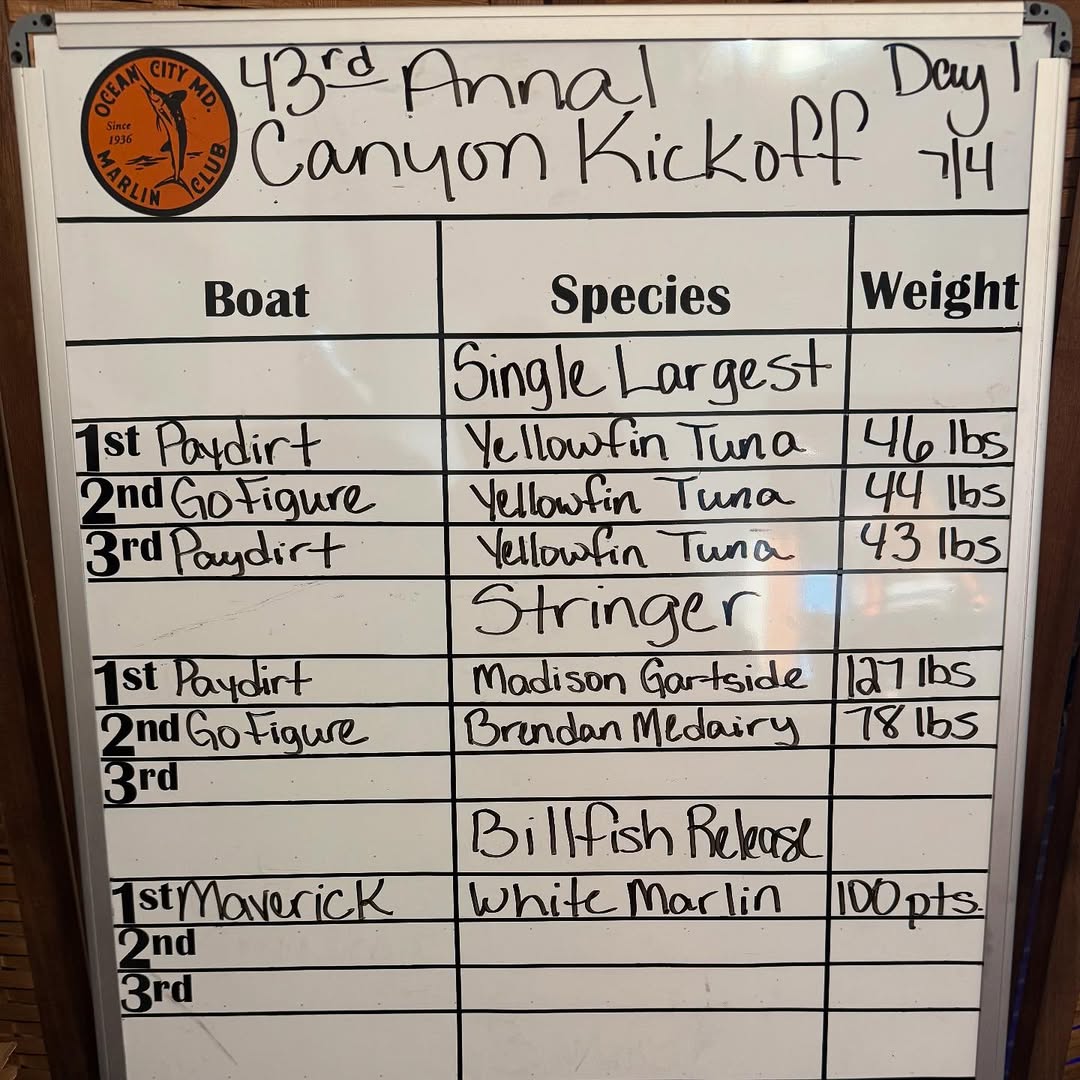 OCEAN CITY MD.
Since
1936
MARLIN CLUB
43rd Annal
Canyon Kickoff
Day 1
7/4
Boat Species Weight
Single Largest
1st Paydirt Yellowfin Tuna 46 lbs
2nd Go Figure Yellowfin Tuna 44 lbs
3rd Paydirt Yellowfin Tuna 43 lbs
Stringer
1st Paydirt Madison Gartside 127 lbs
2nd Go Figure Brendan Mcdairy 78 lbs
3rd
Billfish Release
1st Maverick White Marlin 100 pts.
2nd
3rd